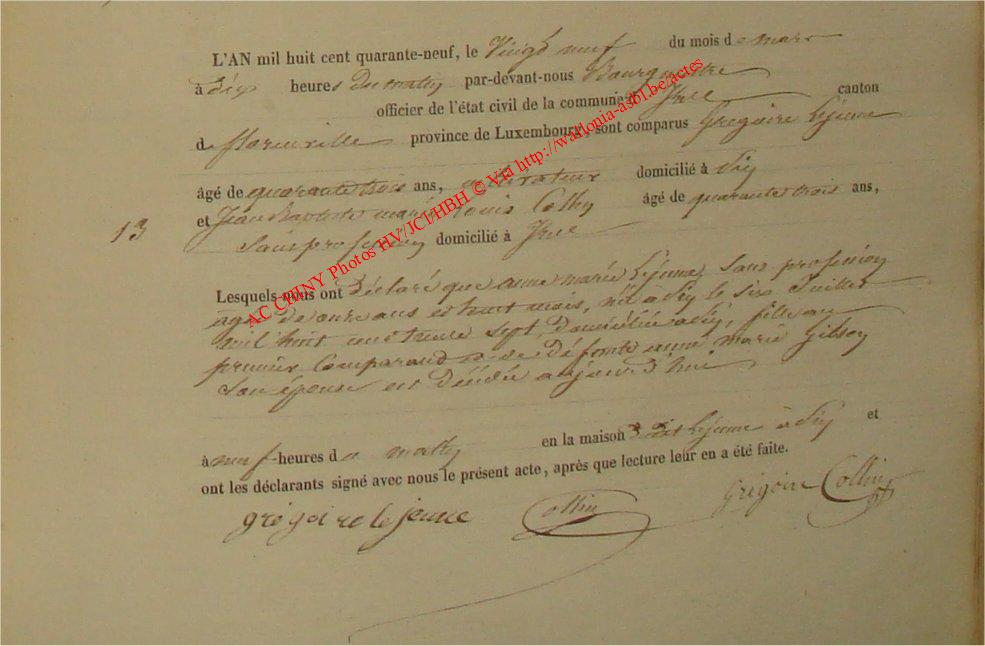 L'AN mil huit cent quarante-neuf, le Vingt neuf du mois de mars
à dix heures du matin par-devant-nous Bourgmestre
officier de l'état civil de la commune d' Izel canton
de florenville province de Luxembourg, sont comparus Grégoire Lejeune
âgé de quarante trois ans, cultivateur domicilié à
et Jean Baptiste marie Louis Collin âgé de quarante trois ans,
13
Sans profession domicilié à Izel
Lesquels nous ont Déclaré que anne marie Lejeune, Sans profession
agée de onze ans et huit mois, née à le six Juillet
mil huit cent trente sept Domiciliée à fille au
premier Comparant et de Défunte anne marie Gilson
Son épouse est Décédée aujourd'hui
à neuf heures du matin en la maison dudit Lejeune à et
ont les déclarants signé avec nous le présent acte, après que lecture leur en a été faite.
grégoire lejeune Collin Grégoire Collin
AC CHINY Photos HV/JCI/HBH © Via http://wallonia-asbl.be/actes